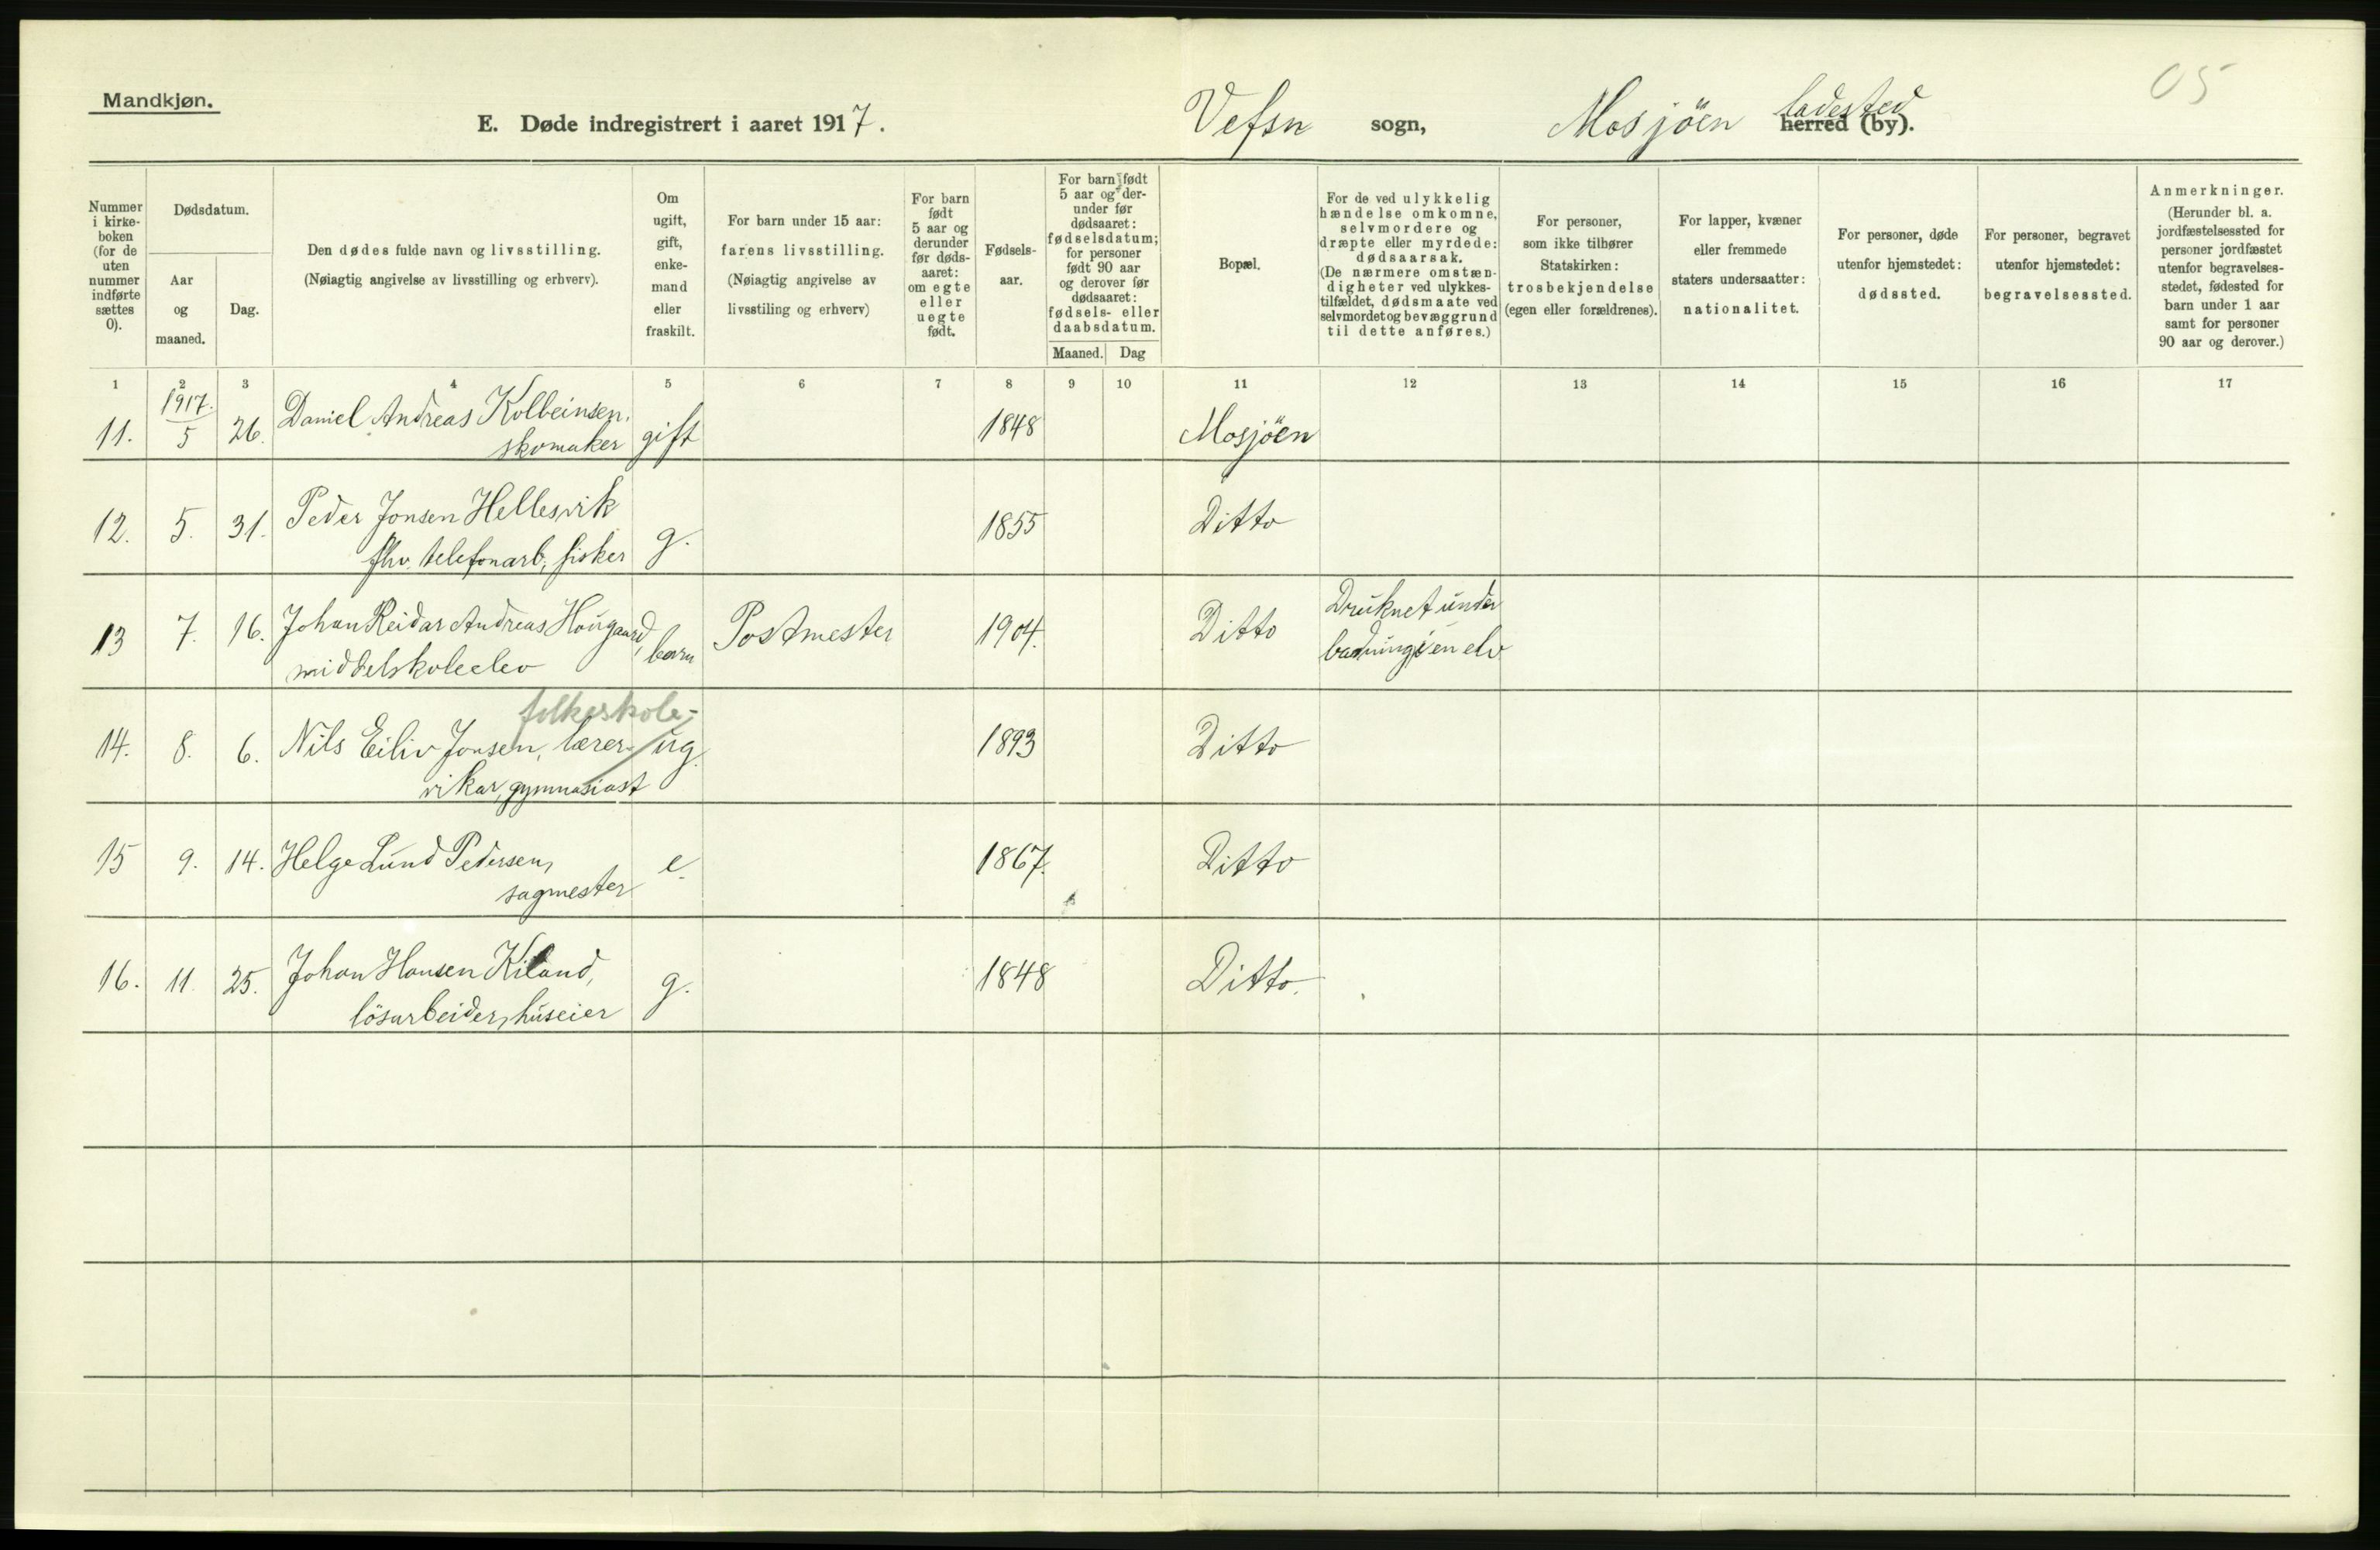 05
Mandkjøn.
E. Døde indregistrert i aaret 1917.
Vefsn sogn, Mosjöen ladested herred (by).
Nummer i kirkeboken (for de uten nummer indførte sættes 0).
Dødsdatum.
Aar og maaned.
Dag.
Den dødes fulde navn og livsstilling.
(Nøiagtig angivelse av livsstilling og erhverv).
Om ugift, gift, enkemand eller fraskilt.
For barn under 15 aar:
farens livsstilling.
(Nøiagtig angivelse av livsstiling og erhverv)
For barn født 5 aar og derunder før dødsaaret: om egte eller uegte født.
Fødselsaar.
For barn født 5 aar og derunder før dødsaaret: fødselsdatum; for personer født 90 aar og derover før dødsaaret: fødsels- eller daabsdatum.
Maaned. Dag
Bopæl.
For de ved ulykkelig hændelse omkomne, selvmordere og dræpte eller myrdede: dødsaarsak.
(De nærmere omstændigheter ved ulykkestilfældet, dødsmaate ved selvmordet og bevæggrund til dette anføres.)
For personer, som ikke tilhører Statskirken: trosbekjendelse (egen eller forældrenes).
For lapper, kvæner eller fremmede staters undersaatter: nationalitet.
For personer, døde utenfor hjemstedet: dødssted.
For personer, begravet utenfor hjemstedet: begravelsessted.
Anmerkninger.
(Herunder bl. a. jordfæstelsessted for personer jordfæstet utenfor begravelsesstedet, fødested for barn under 1 aar samt for personer 90 aar og derover.)
1 2 3 4 5 6 7 8 9 10 11 12 13 14 15 16 17
1917.
11. 5 26. Daniel Andreas Kolbeinsen, gift 1848 Mosjöen
skomaker
12. 5. 31. Peder Jonsen Hellesvik g. 1855 Ditto
fhv. telefonarb., fisker
13 7. 16. Johan Reidar Andreas Hougaard, barn Postmester 1904. Ditto Druknet under
middelskoleelev badning i en elv
folkeskole-
14. 8. 6. Nils Eiliv Jonsen, lærer- ug. 1893 Ditto
vikar, gymnasiast
15 9. 14. Helge Lund Pedersen, e. 1867. Ditto
sagmester
16. 11. 25. Johan Hansen Kiland, g. 1848 Ditto.
lösarbeider, huseier